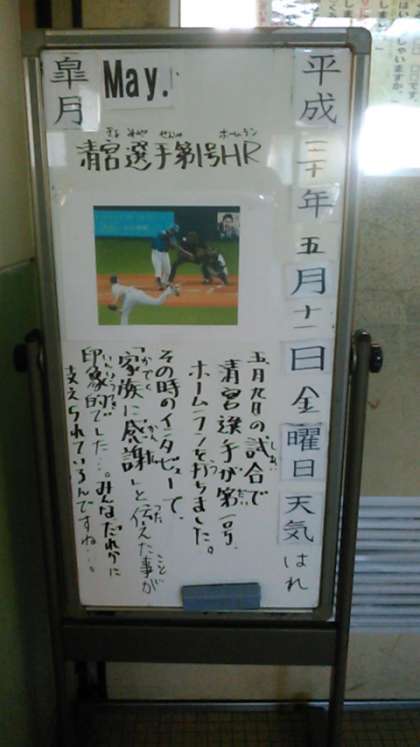 平成三十年五月十一日金曜日天気はれ
皐月
May.
きよみやせんしゅ ホームラン
清宮選手第1号HR
五月九日の試合で
清宮選手が第一号、
ホームランを打ちました。
その時のインタビューで、
「家族に感謝」と伝えた事が
印象的でした…。みんなだれかに
支えられているんですね…。